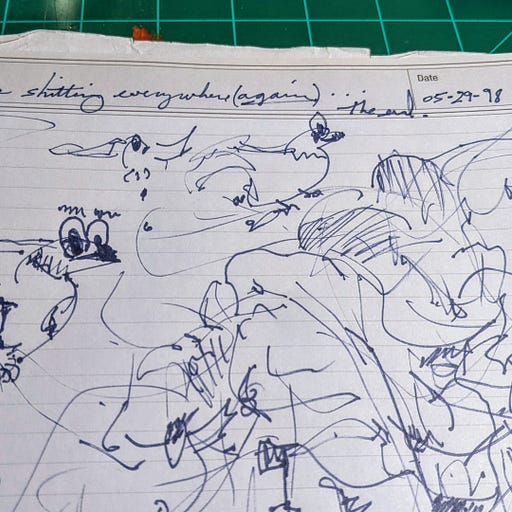 Date
shitting everywhere (again) ... The end. 05-29-98